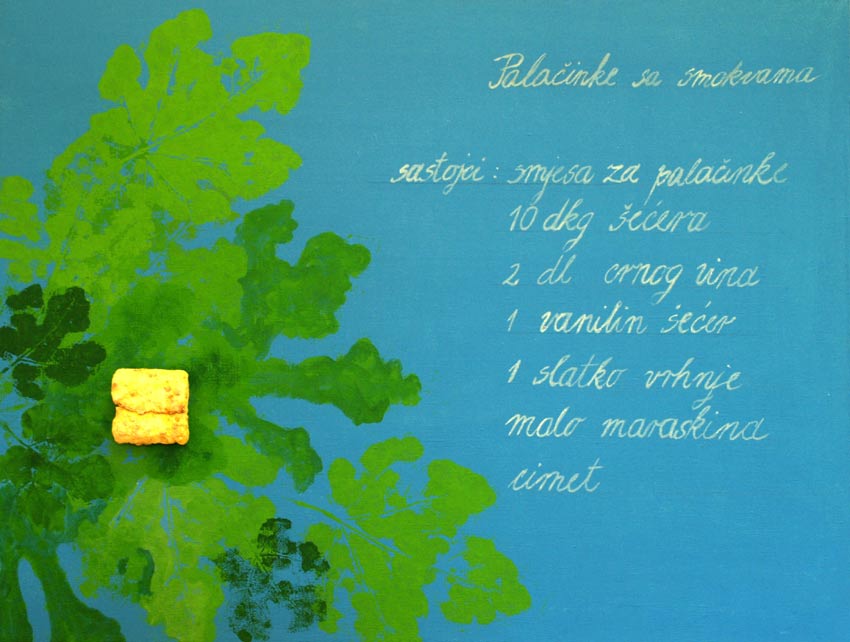 Palačinke sa smokvama
sastojci: smjesa za palačinke
10 dkg šećera
2 dl crnog vina
1 vanilin šećer
1 slatko vrhnje
malo maraskina
cimet